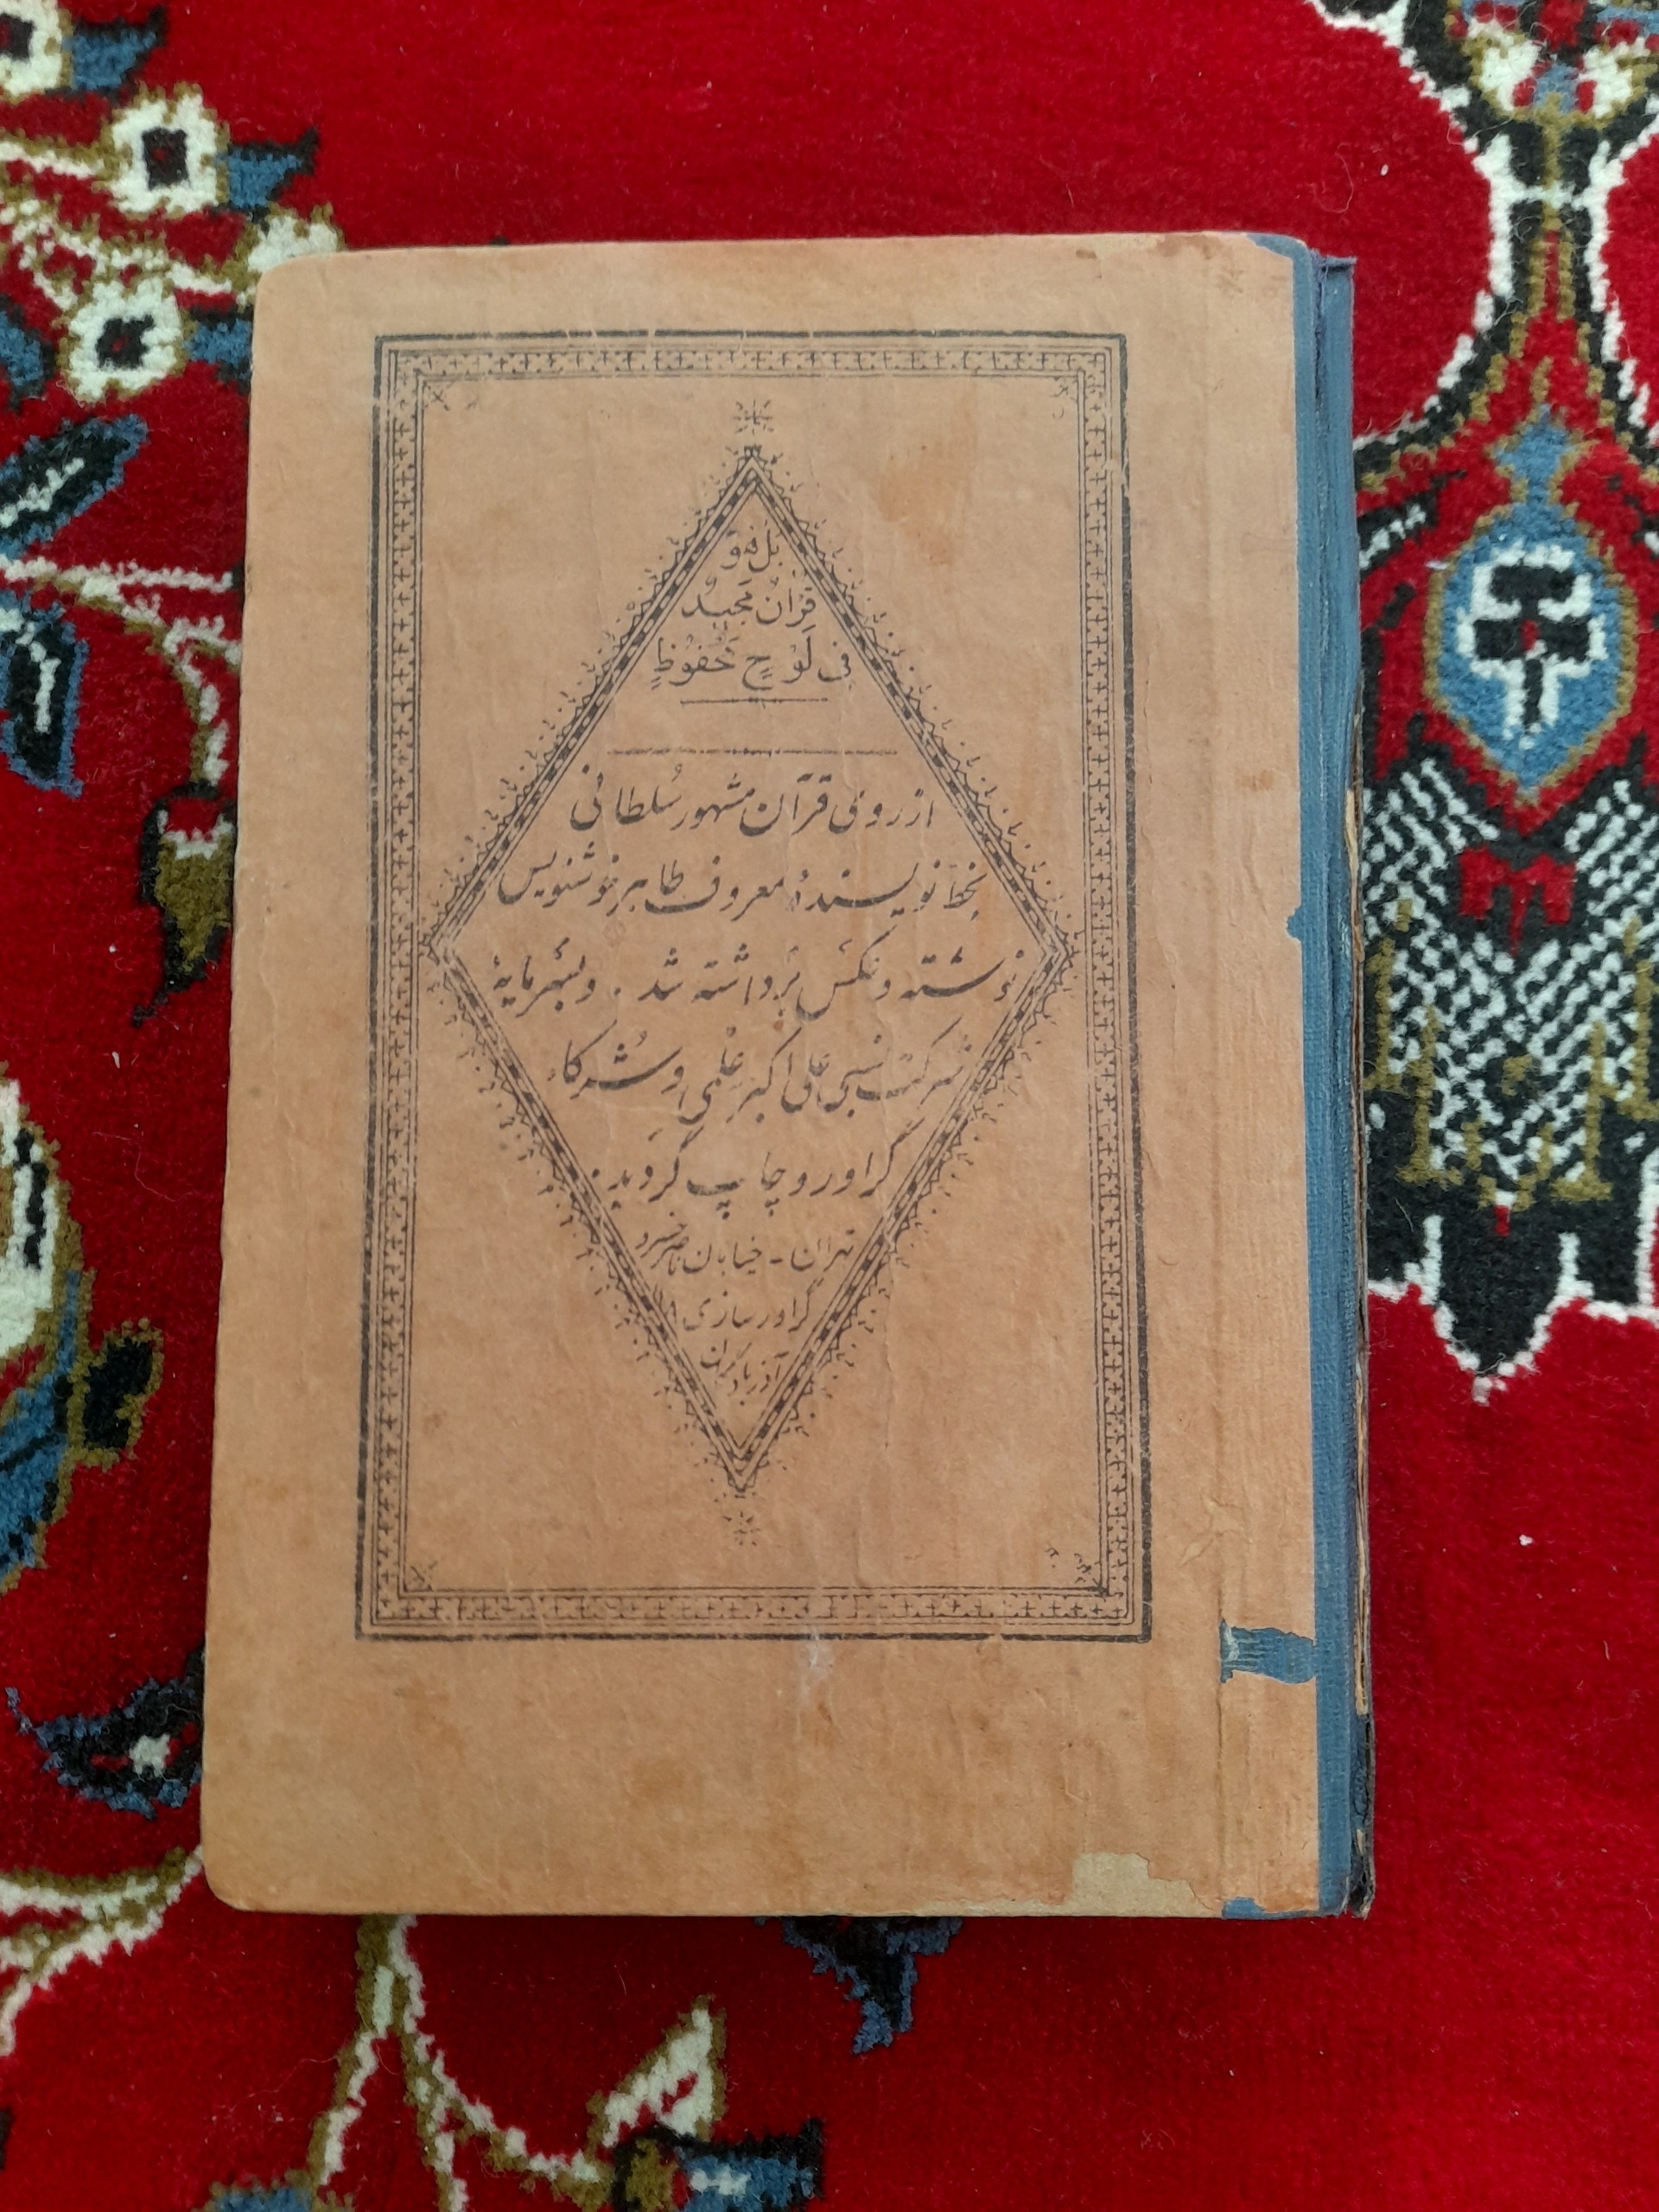 بَل هُوَ
قُرْآنٌ مَجیدٌ
فی لَوْحٍ مَحْفُوظٍ
از روی قرآن مشهور سُلطانی
بخطّ نویسندهٔ معروف طاهر خوشنویس
نوشته و عکس برداشته شد . و بسَرمایهٔ
شرکت نسبی علی اکبر عِلمی و شُرکاء
گراور و چاپ گروید .
تهران - خیابان ناصر خسرو
گراور سازی
آذربادگان